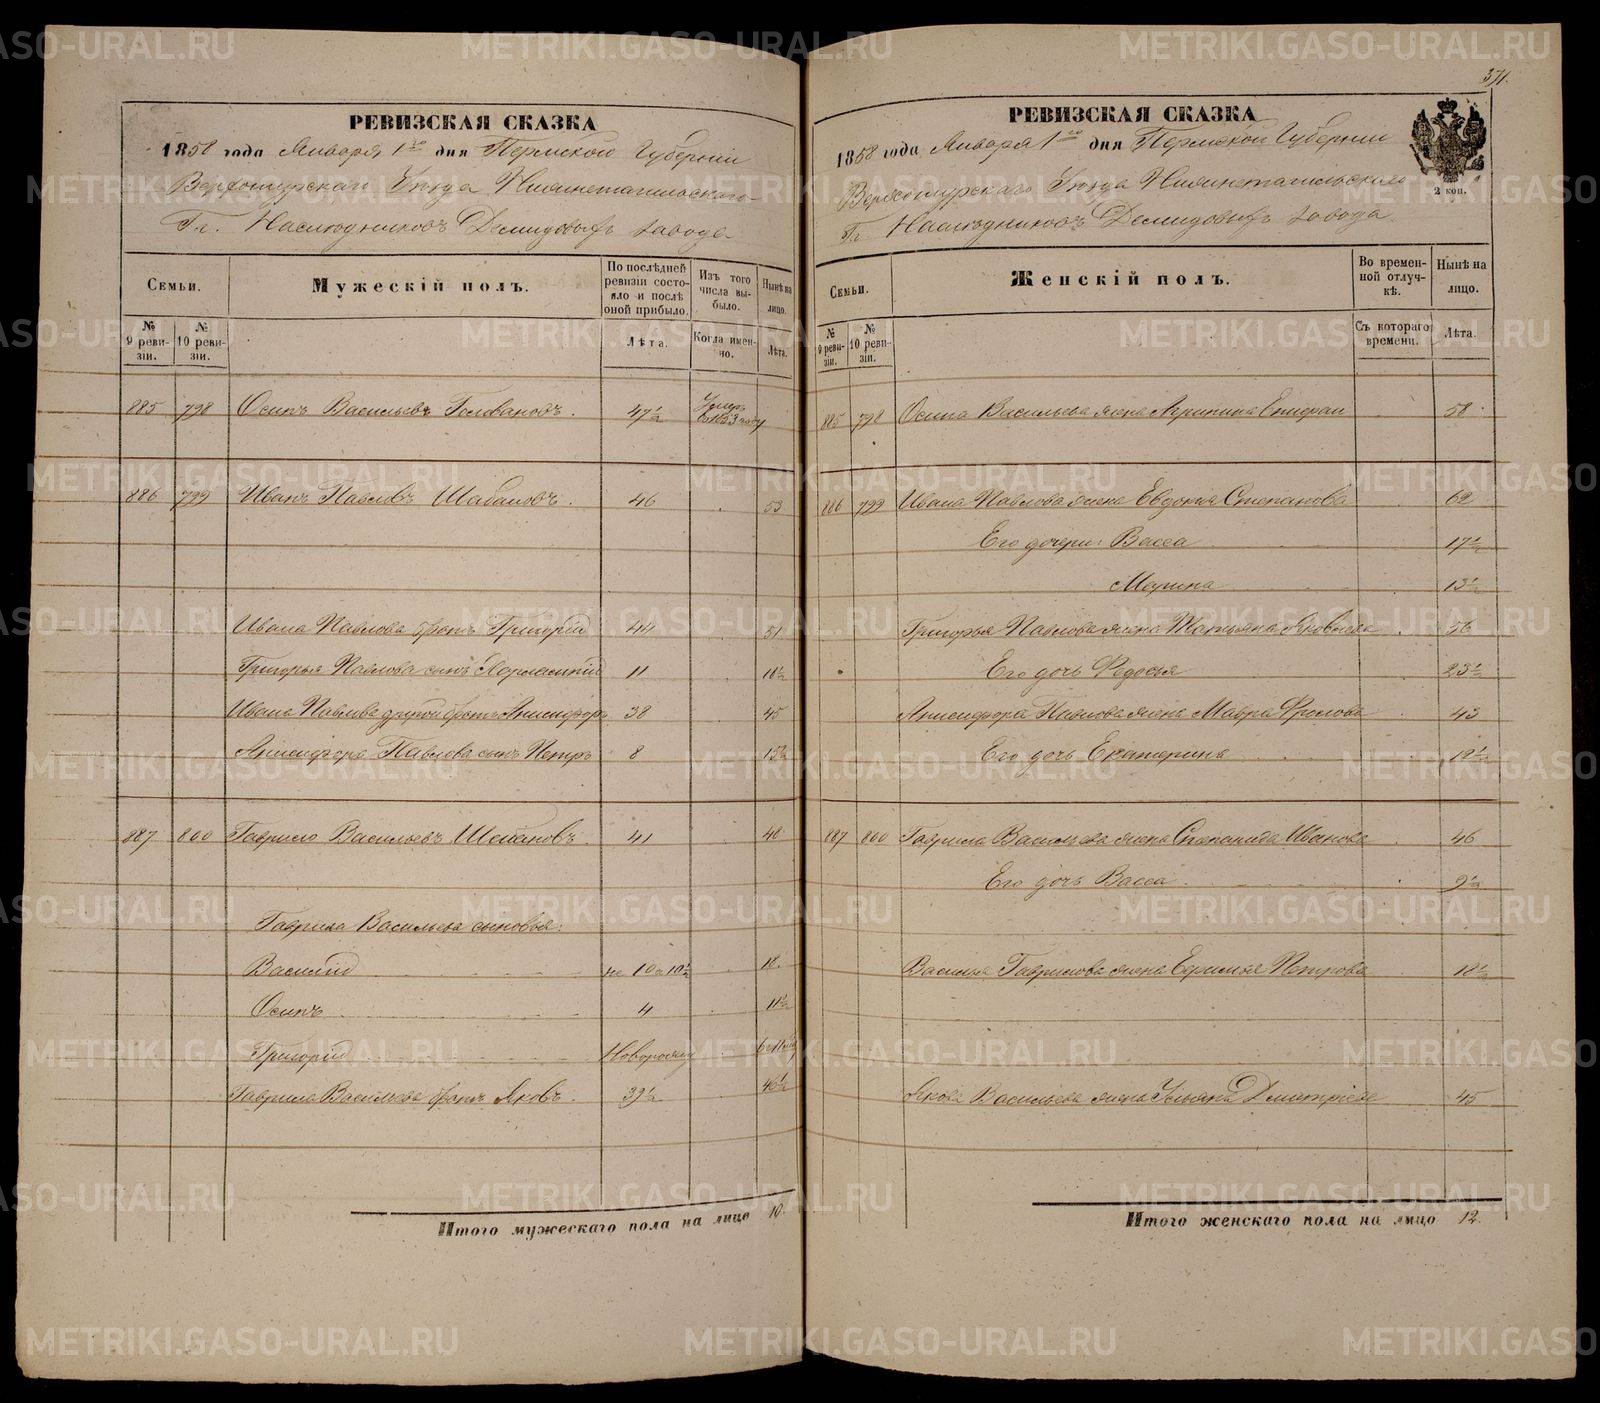 371.
РЕВИЗСКАЯ СКАЗКА
1858 года Января 1го дня Пермской Губернии
Верхотурскаго Уѣзда Нижнетагильскаго
Гг. Наслѣдниковъ Демидовыхъ завода
Семьи.
Мужескій полъ.
По послѣдней ревизіи состояло и послѣ оной прибыло.
Изъ того числа выбыло.
Нынѣ на лицо.
№ 9 ревизіи.
№ 10 ревизіи.
Лѣта.
Когда именно.
Лѣта.
885 798 Осипъ Васильевъ Головановъ. 47½ Умеръ въ 1853 году
886 799 Иванъ Павловъ Шабаловъ. 46 53
Ивана Павлова братъ Григорій 44 51
Григорья Павлова сынъ 11 18½
Ивана Павлова другой братъ Анисифоръ 38 45
Анисифора Павлова сынъ Петръ 8 15½
887 800 Гаврило Васильевъ 41 48
Гаврила Васильева сыновья:
Василій не 10 а 10½ 18.
Осипъ 4 11½
Григорій Новорожд
Гаврила Васильева братъ Яковъ. 39½ 46½
Итого мужескаго пола на лицо 10.
РЕВИЗСКАЯ СКАЗКА
1858 года Января 1го дня Пермской Губерніи
2 коп.
Верхотурскаго Уѣзда Нижнетагильскаго
Гг. Наслѣдниковъ Демидовыхъ завода.
Семьи.
Женскій полъ.
Во временной отлучкѣ.
Нынѣ на лицо.
№ 9 ревизіи.
№ 10 ревизіи.
Съ котораго времени.
Лѣта.
885 798 Осипа Васильева жена Агрипина 58
886 799 Ивана Павлова жена Евдокья Степанова 62
Его дочери: Васса 17½
Марина 13½
Григорья Павлова жена Татьяна Яковлева 56
Его дочь Федосья 23½
Анисифора Павлова жена Мавра Фролова 43
Его дочь Екатерина 19½
887 800 Гаврила Васильева жена Степанида Иванова 46
Его дочь Васса 9½
Василья Гаврилова жена Ефимья Петрова 18½
Якова Васильева жена Ульяна Дмитріева 45
Итого женскаго пола на лицо 12.
METRIKI.GASO-URAL.RU